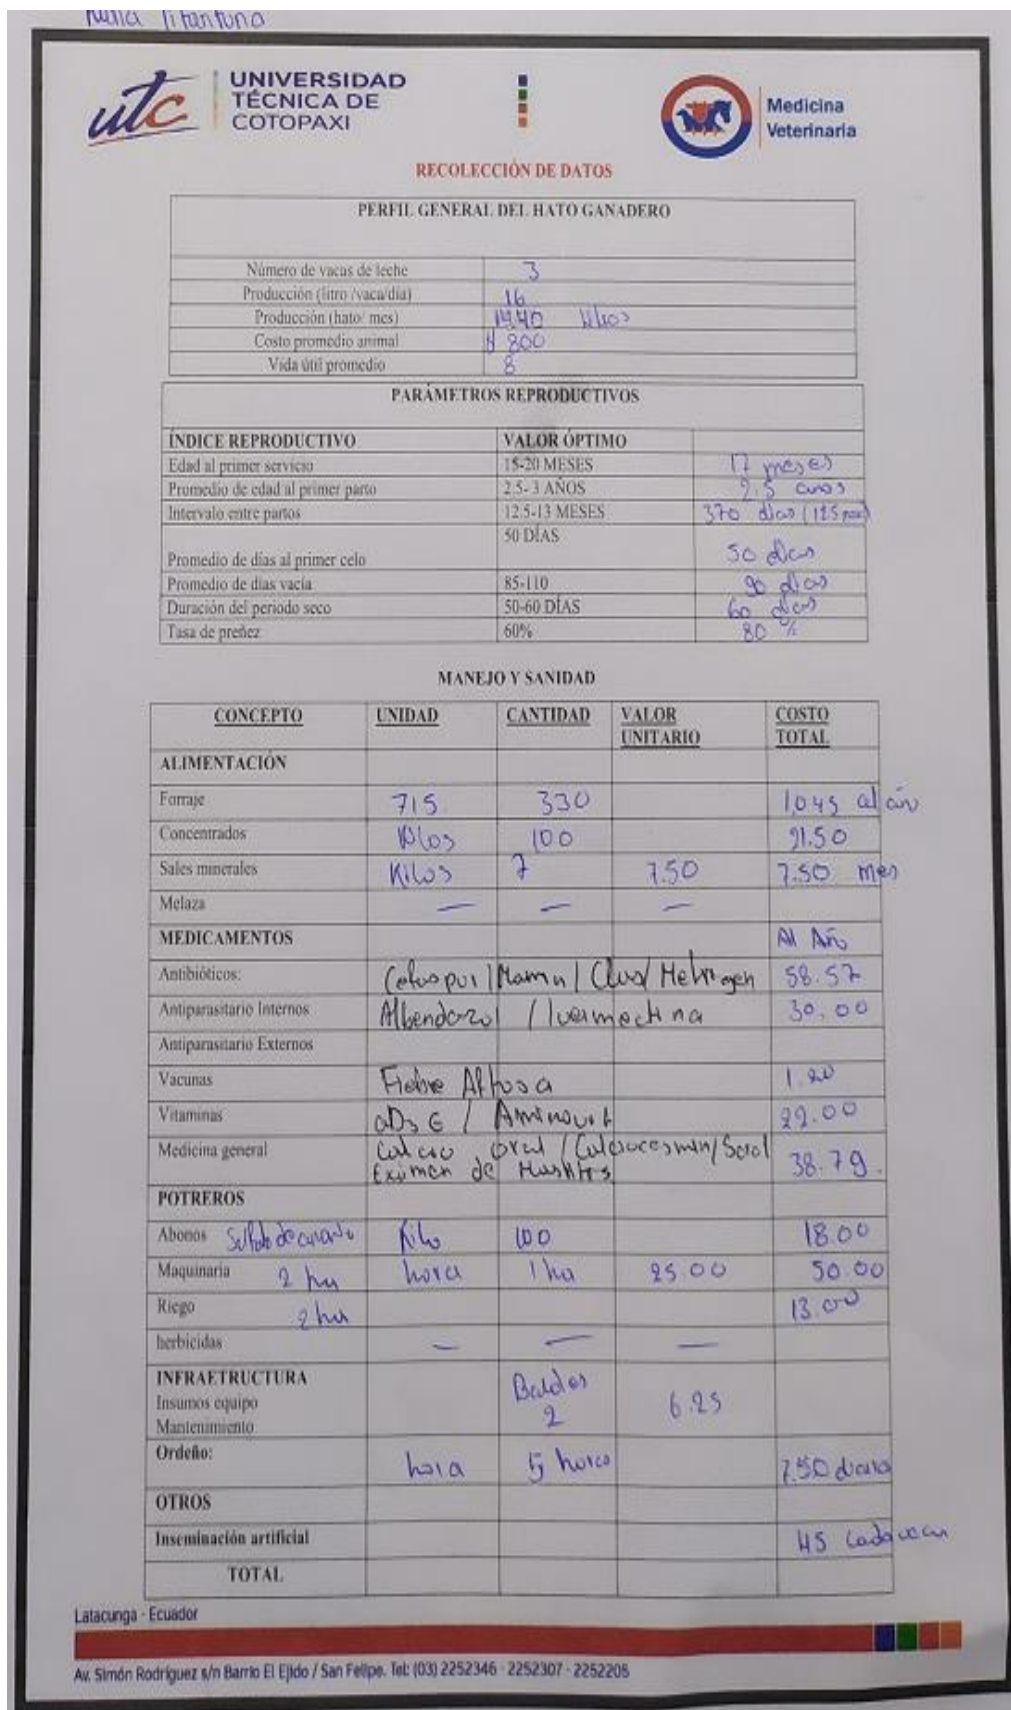 utc
UNIVERSIDAD
TÉCNICA DE
COTOPAXI
Medicina
Veterinaria
RECOLECCIÓN DE DATOS
PERFIL GENERAL DEL HATO GANADERO
Número de vacas de leche 3
Producción (litro /vaca/día) 16
Producción (hato/ mes) 1440
Costo promedio animal $ 800
Vida útil promedio 8
PARÁMETROS REPRODUCTIVOS
ÍNDICE REPRODUCTIVO VALOR ÓPTIMO
Edad al primer servicio 15-20 MESES 17 meses
Promedio de edad al primer parto 2.5- 3 AÑOS 2.5 años
Intervalo entre partos 12.5-13 MESES 370 dias
50 DÍAS
Promedio de días al primer celo 50 dias
Promedio de días vacía 85-110 90 dias
Duración del periodo seco 50-60 DÍAS 60 dias
Tasa de preñez 60% 80 %
MANEJO Y SANIDAD
CONCEPTO UNIDAD CANTIDAD VALOR UNITARIO COSTO TOTAL
ALIMENTACIÓN
Forraje 715 330 1,045 al
Concentrados Kilos 100 21.50
Sales minerales Kilos 7 7.50 7.50 mes
Melaza — — —
MEDICAMENTOS Al Año
Antibióticos: 58.57
Antiparasitario Internos Albendazol / Ivermectina 30.00
Antiparasitario Externos
Vacunas Fiebre Aftosa 1.20
Vitaminas 22.00
Medicina general Calcio oral /
Examen de Mastitis 38.79
POTREROS
Abonos Kilo 100 18.00
Maquinaria 2 hrs hora 1 ha 25.00 50.00
Riego 2 hrs 13.00
herbicidas — — —
INFRAETRUCTURA
Insumos equipo Baldes 2 6.25
Mantenimiento
Ordeño: hora 5 horas 7.50 diario
OTROS
Inseminación artificial 45 cada vaca
TOTAL
Latacunga - Ecuador
Av. Simón Rodríguez s/n Barrio El Ejido / San Felipe. Tel: (03) 2252346 - 2252307 - 2252205